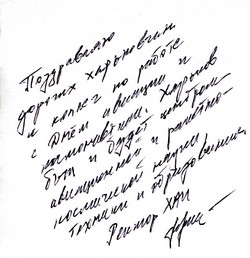 Поздравляю
дорогих харьковчан
и коллег по работе
с Днём авиации и
космонавтики. Харьков
был и будет центром
авиационной и ракетно-
космической науки,
техники и образования.
Ректор ХАИ